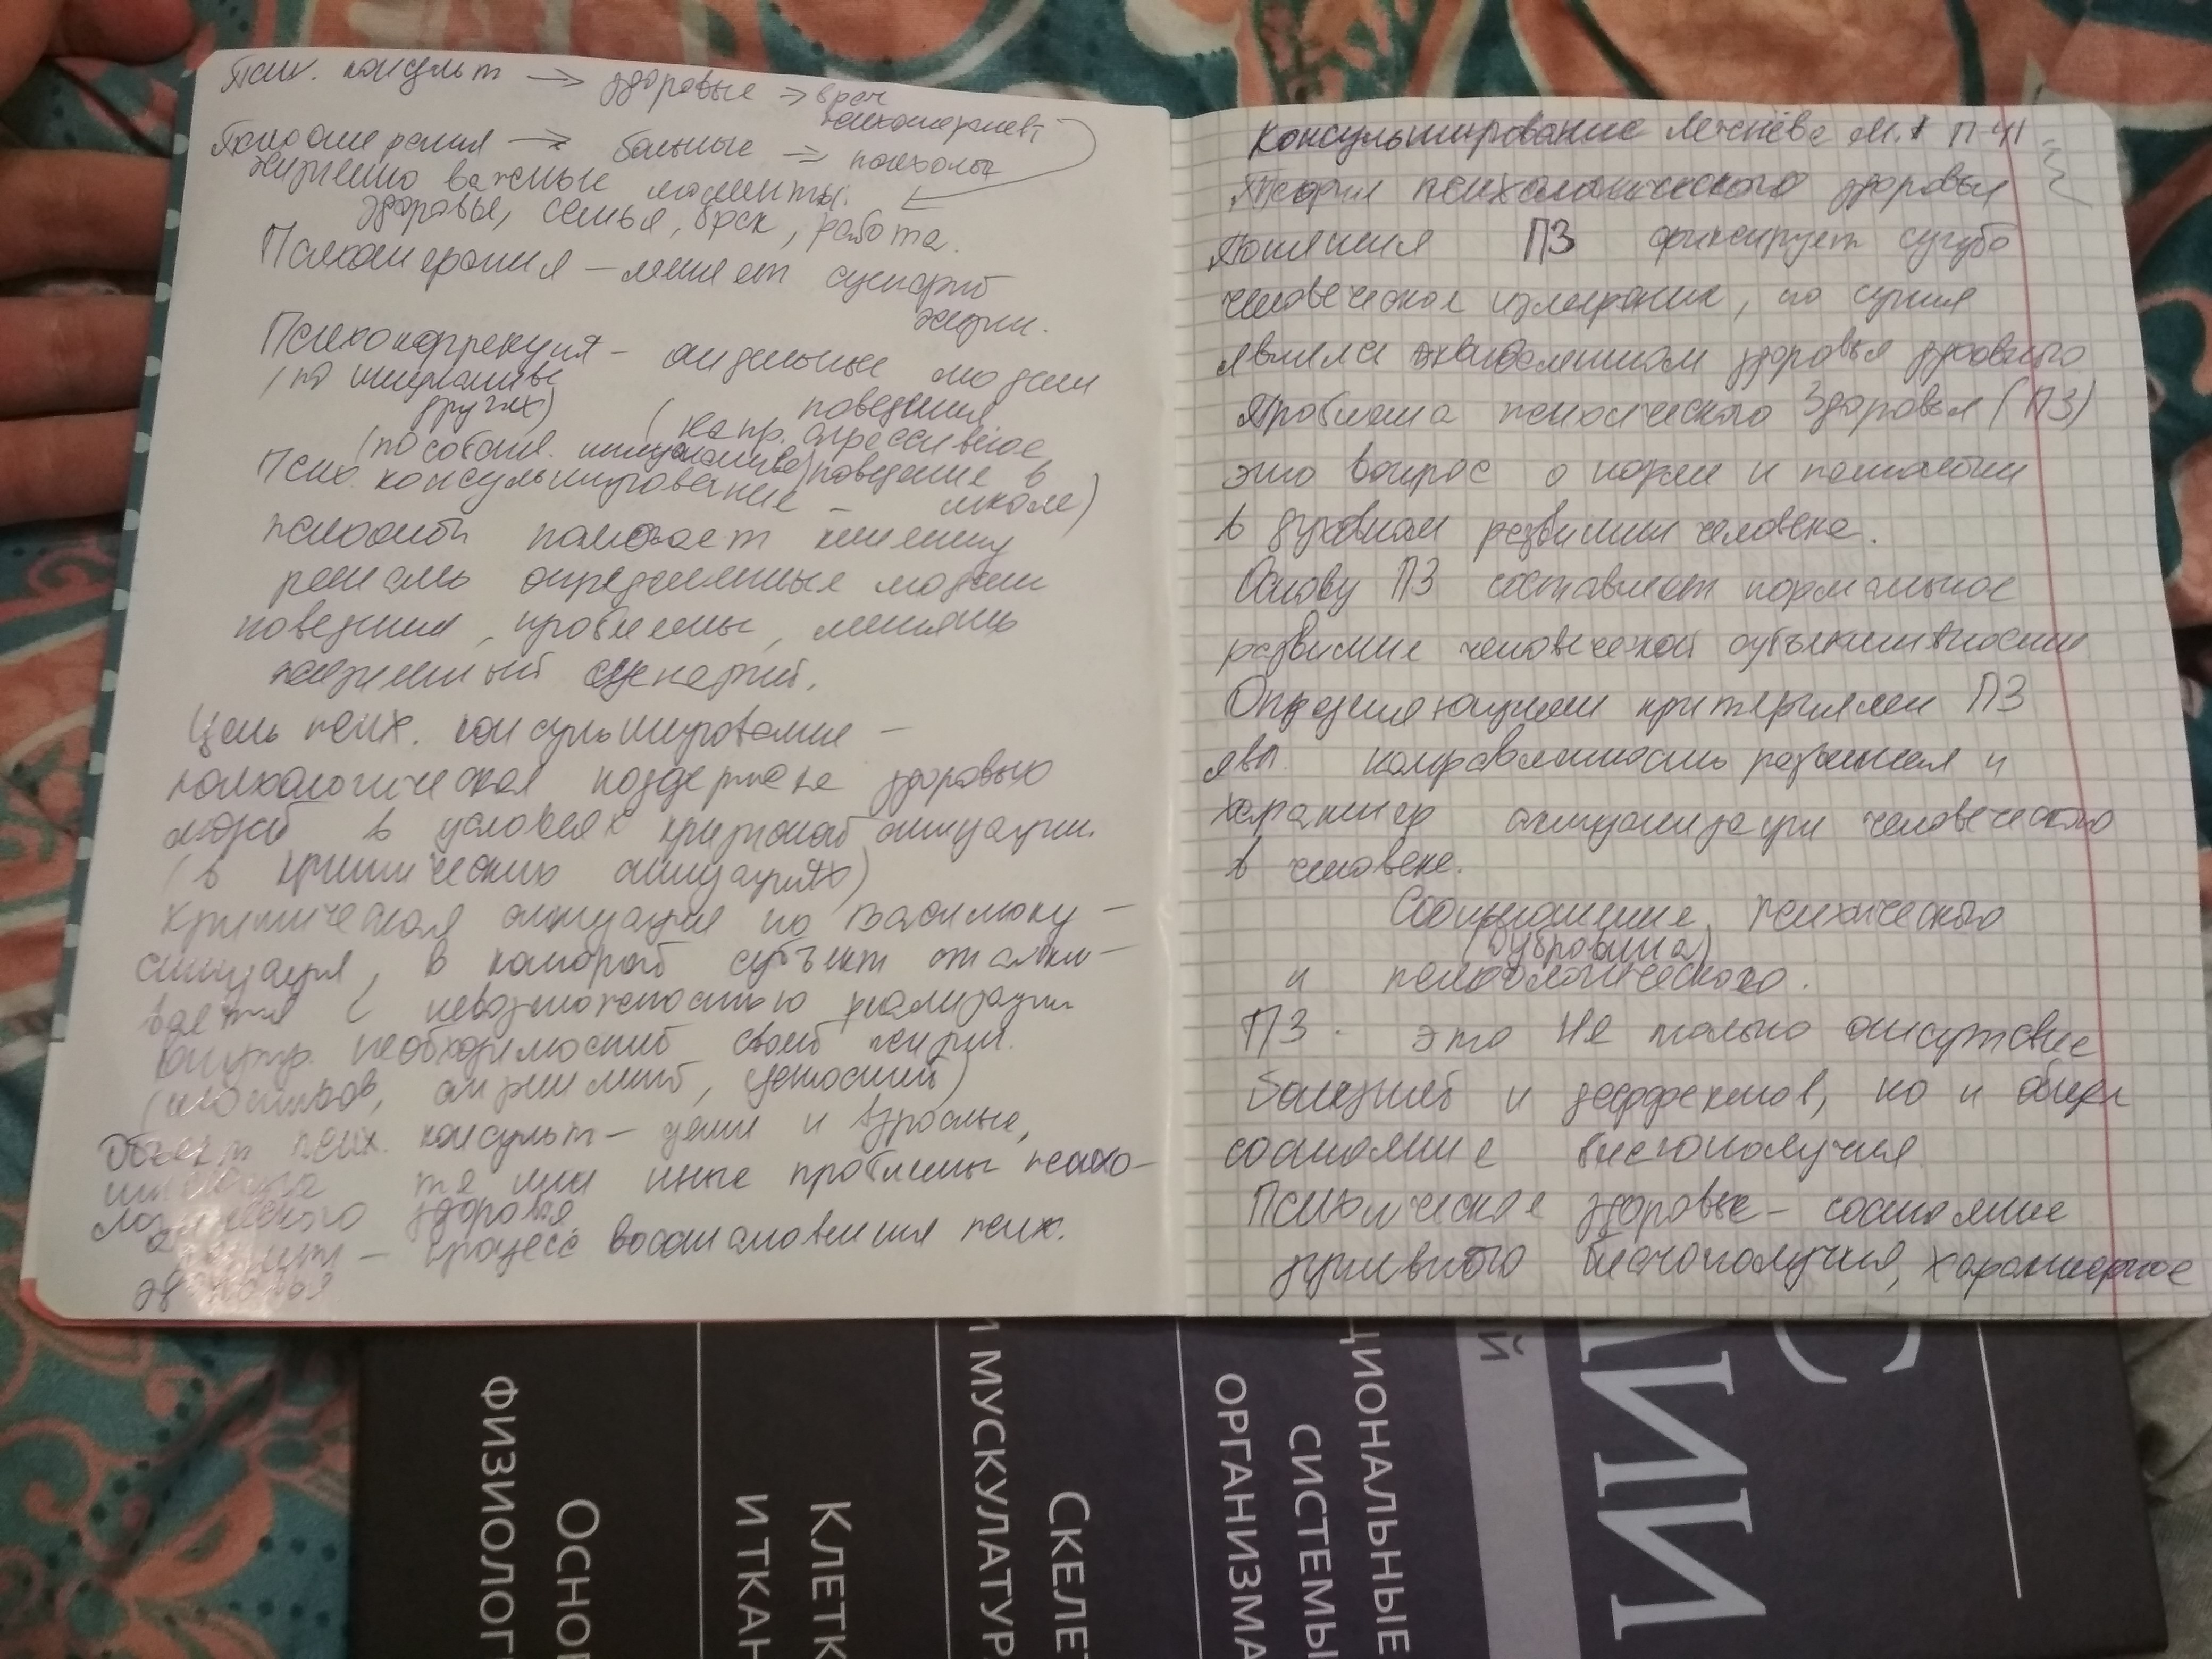 Псих. консульт → здоровые → врач
психотерапевт
Психотерапия → больные → психолог
жизненно важные моменты.
здоровье, семья, брак, работа.
Психотерапия – меняет сценарий
жизни.
Психокоррекция – отдельные модели
(по инициативе поведения
других) (напр. агрессивное
(по собствен. инициативе) поведение в
Псих. консультирование – школе)
психолог помогает клиенту
решать определенные модели
поведения, проблемы, менять
жизненный сценарий.
Цель псих. консультирования –
психологическая поддержка здоровью
людей в условиях кризисной ситуации.
(в критических ситуациях)
Критическая ситуация по Василюку –
ситуация, в которой субъект сталки-
вается с невозможностью реализации
внутр. необходимостей своей жизни.
(мотивов, стремлений, ценностей)
Объект псих. консульт – дети и взрослые,
те или иные проблемы психо-
логического здоровья
– процесс восстановления псих.
здоровья
Консультирование М. П 41
Теория психологического здоровья
Понятия ПЗ фиксирует сугубо
человеческое измерение, по сути
являясь эквивалентом здоровья духовного
Проблема психологического Здоровья (ПЗ)
это вопрос о норме и патологии
в духовном развитии человека.
Основу ПЗ составляет нормальное
развитие человеческой субъективности
Определяющими критериями ПЗ
явл. направленность развития и
характер актуализации человеческого
в человеке.
Соотношение психического
(Дубровина)
и психологического.
ПЗ - это не только отсутствие
болезней и деффектов, но и общее
состояние благополучия
Психическое здоровье – состояние
душевного благополучия, характерное
ФИЗИОЛОГ
ОСНО
И ТКАН
КЛЕТК
И МУСКУЛАТУР
СКЕЛЕ
ОРГАНИЗМА
СИСТЕМЫ
ЦИОНАЛЬНЫЕ
Й